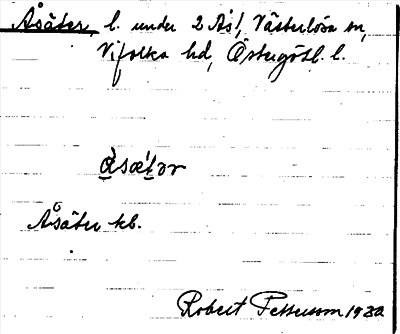 Åsäter, l. under 2 Ås, Västerlösa sn,
Vifolka hd, Östergötl. l.
Åsäter kb.
Robert Pettersson 1930